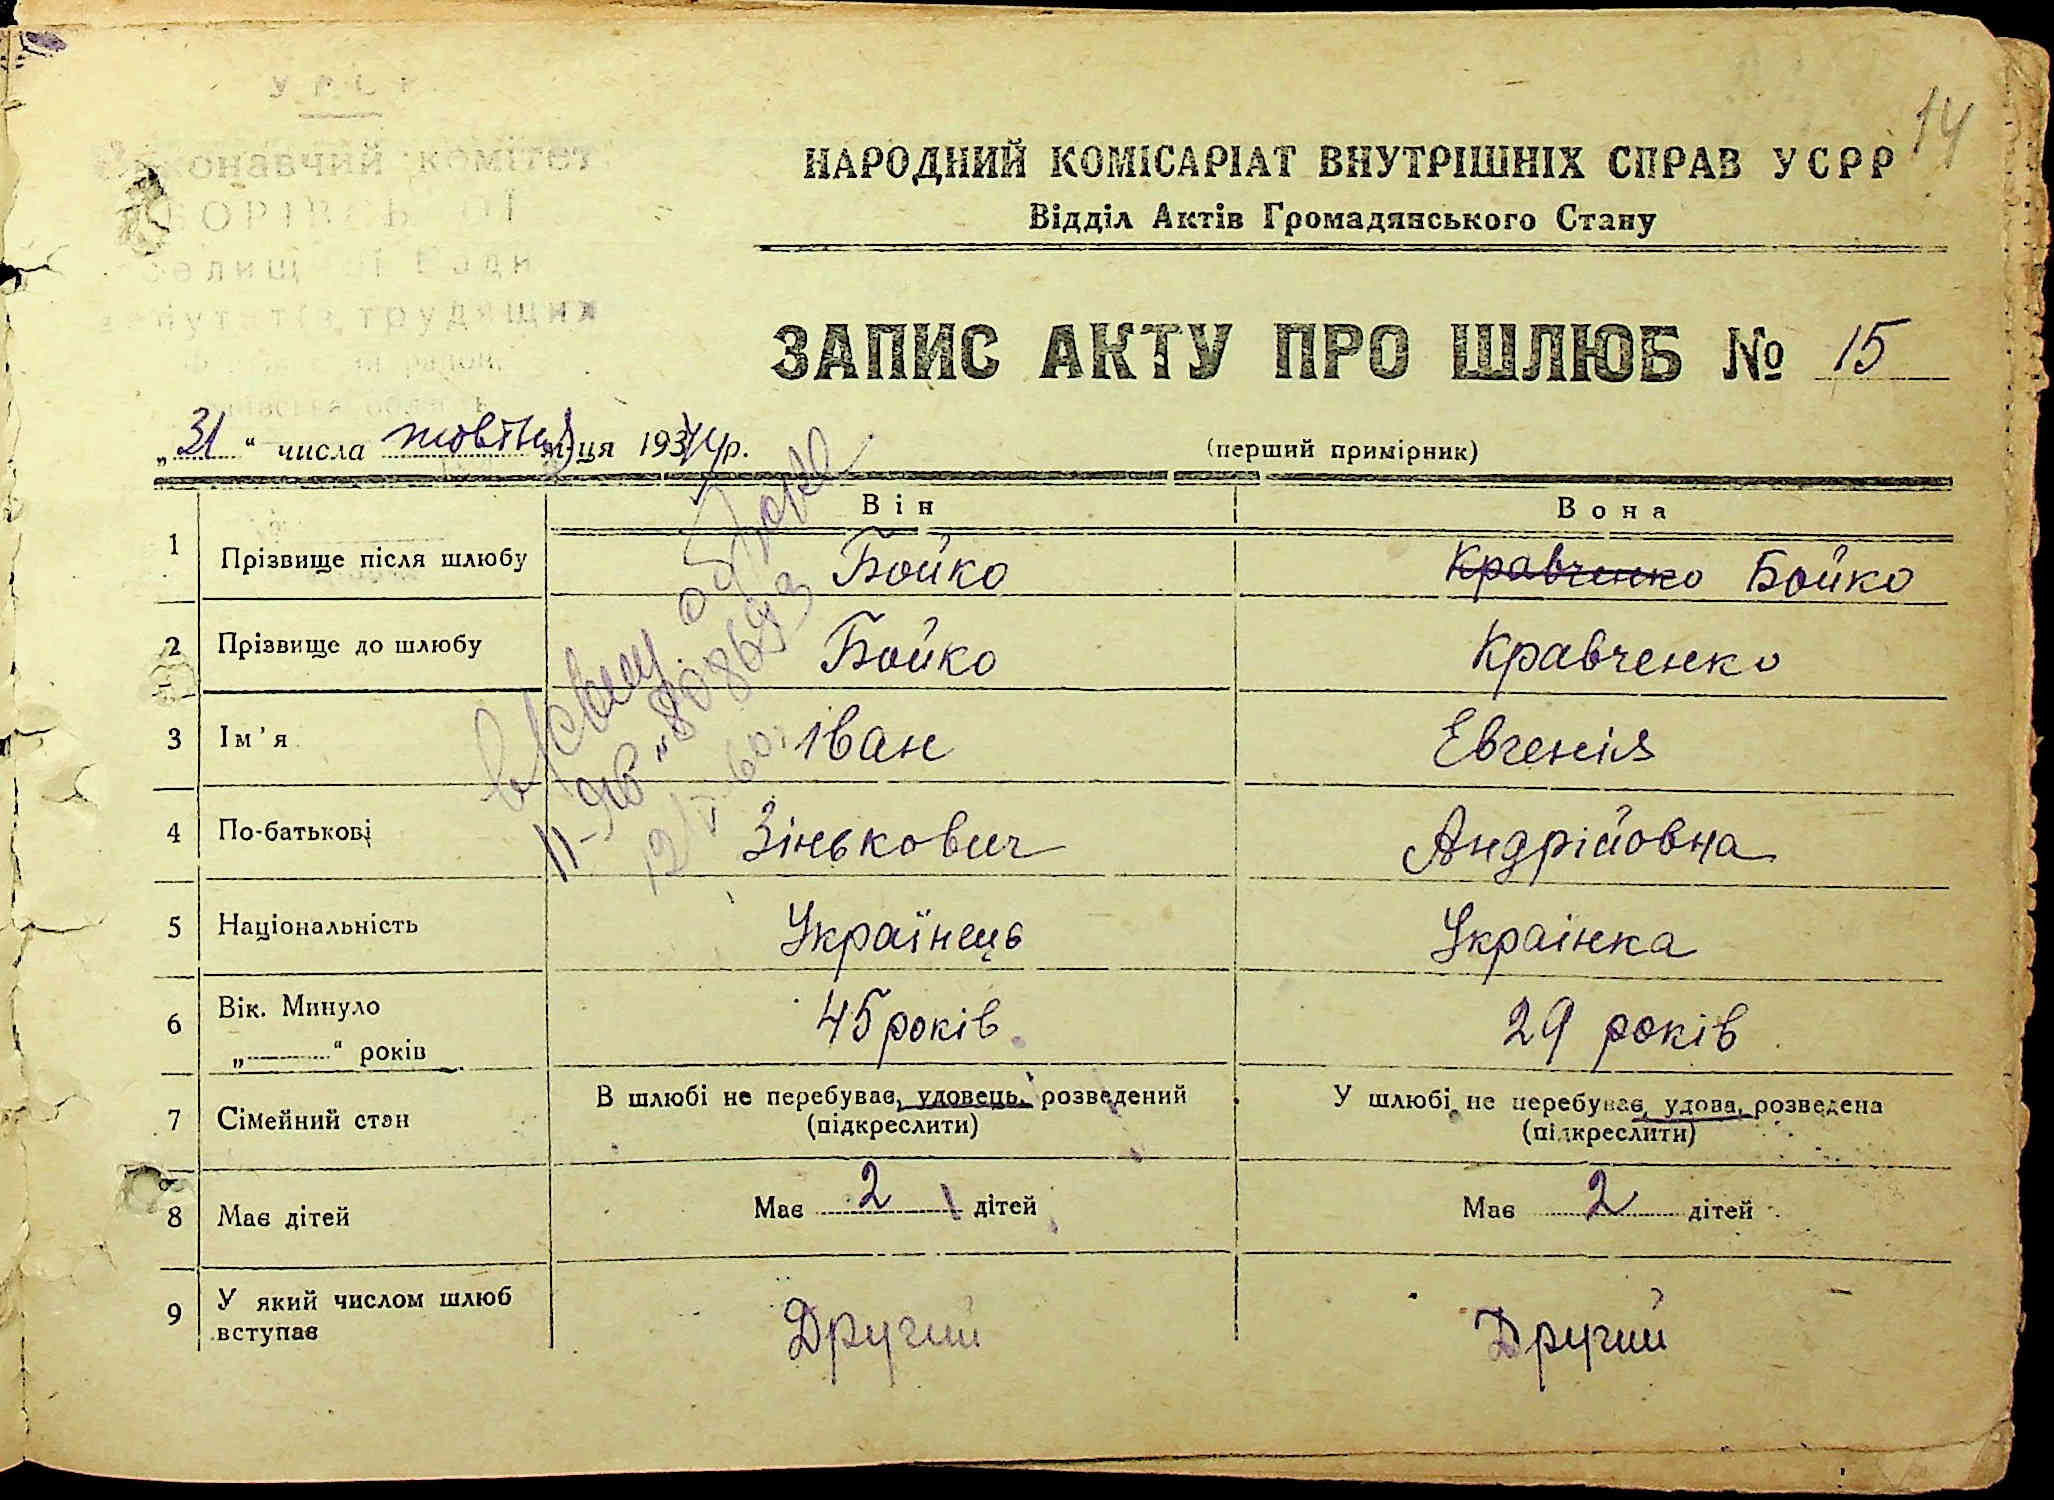 14
У Р С Р
Виконавчий комітет
депутатів трудящих
НАРОДНИЙ КОМІСАРІАТ ВНУТРІШНІХ СПРАВ УСРР
Відділ Актів Громадянського Стану
ЗАПИС АКТУ ПРО ШЛЮБ № 15
„31“ числа жовтня м-ця 1944 р. (перший примірник)
Він Вона
1 Прізвище після шлюбу Бойко Кравченко Бойко
2 Прізвище до шлюбу Бойко Кравченко
3 Ім'я Іван Евгенія
4 По-батькові Зінькович Андрійовна
5 Національність Українець Украінка
6 Вік. Минуло 45 років 29 років
„ “ років
7 Сімейний стан В шлюбі не перебуває, удовець, розведений У шлюбі не перебуває, удова, розведена
(підкреслити) (підкреслити)
8 Має дітей Має 2 дітей Має 2 дітей
9 У який числом шлюб вступає Другий Другий